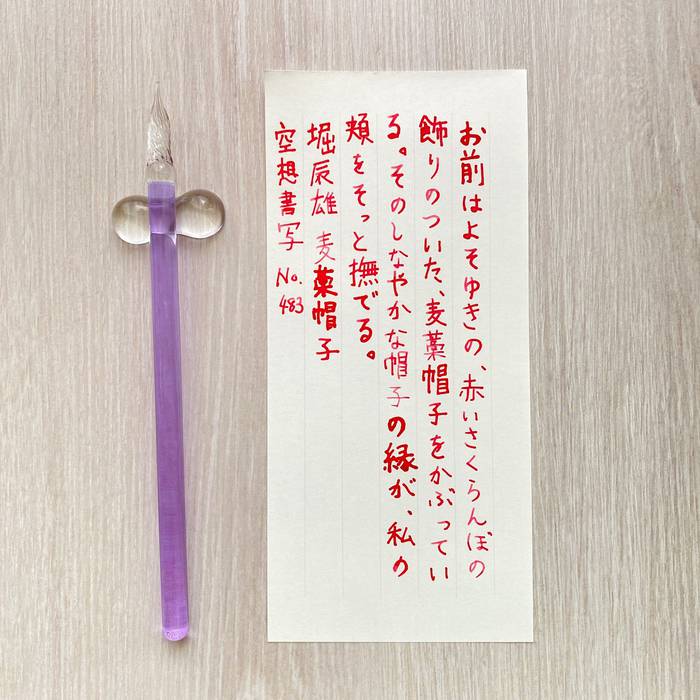 お前はよそゆきの、赤いさくらんぼの
飾りのついた、麦藁帽子をかぶってい
る。そのしなやかな帽子の縁が、私の
頬をそっと撫でる。
堀辰雄 麦藁帽子
空想書写 No.483